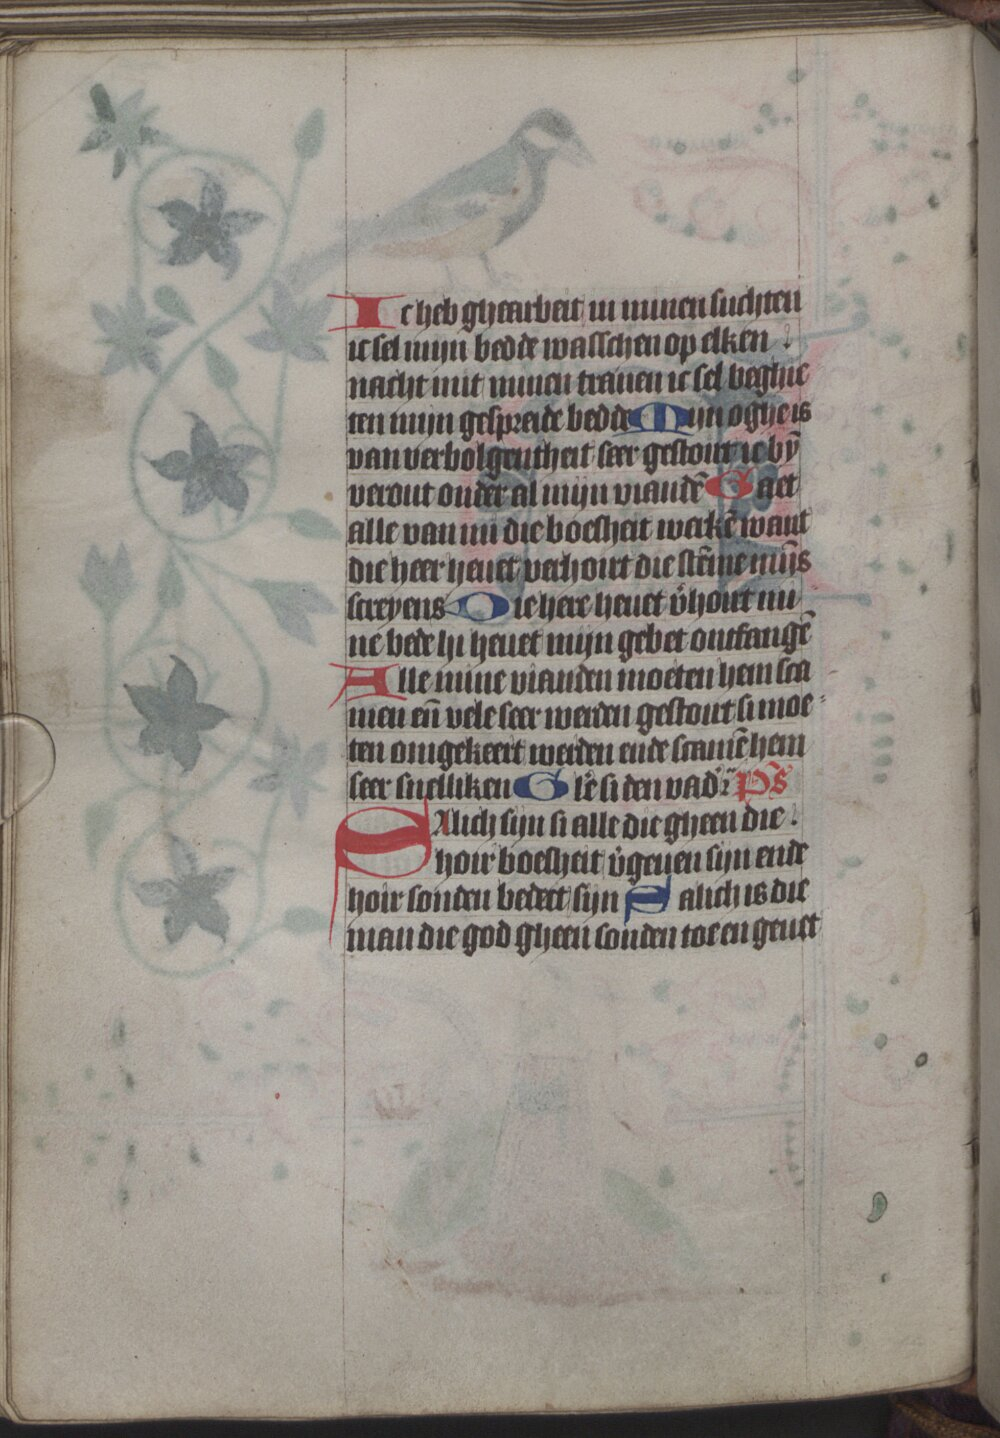 Ic heb ghearbeit in minen suchten
ic sel mijn bedde wasschen op elken
nacht mit minen tranen ic sel beghie
ten mijn gespreide bedde Mijn oghe is
van verbolgentheit seer gestoirt ic by̅
verout onder al mijn viande̅ Gaet
alle van mi die boesheit werke̅ want
die heer heuet verhoirt die ste̅me mijns
screyens Die here heuet v̓hoirt mi
ne bede hi heuet mijn gebet ontfange̅
Alle mine vianden moeten hem sca
men en̅ vele seer werden gestoirt si moe
ten omgekeert werden ende scame̅ hem
seer snelliken Gl̓e si den vad̓ Ps̅
Salich sijn si alle die gheen die
hoir boesheit v̓geuen sijn ende
hoir sonden bedect sijn Salich is die
man die god gheen sonden toe en geuet